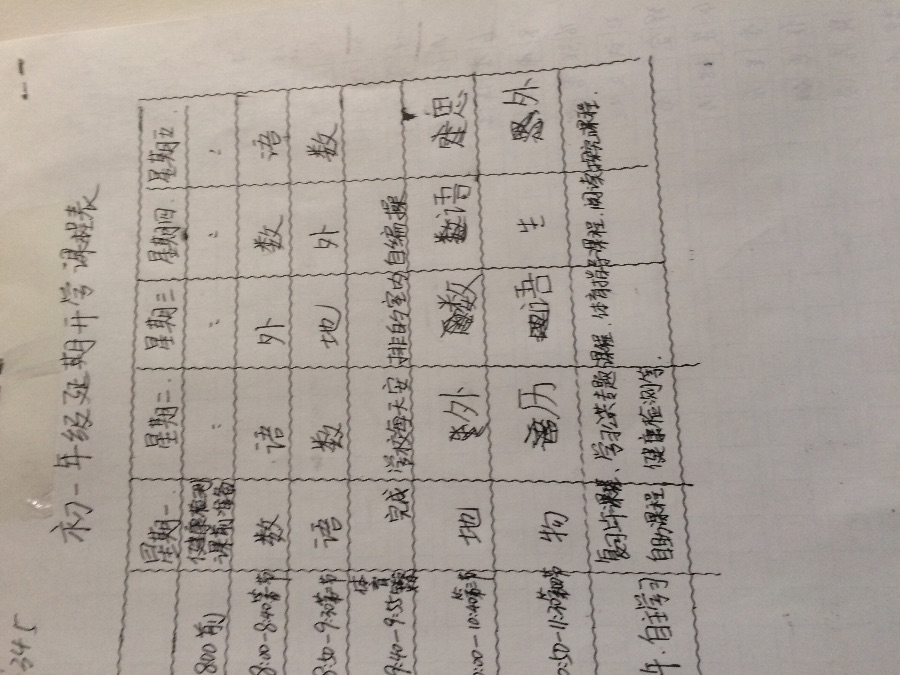 初一年级延期开学课程表
星期一 星期二 星期三 星期四 星期五
800前 健康检测 课前准备 " " " "
8:00-8:40第一节 数 语 外 数 语
8:50-9:30第二节 语 数 地 外 数
9:40-9:55 体育锻炼 完成学校每天安排的室内自编操
:00-10:40第三节 地 外 数 语 思
0:50-11:30第四节 物 历 语 生 外
午.自主学习 复习上午课程、学习公共专题课程、体育指导课程.阅读探究课程.
自助课程 健康检测等.
345